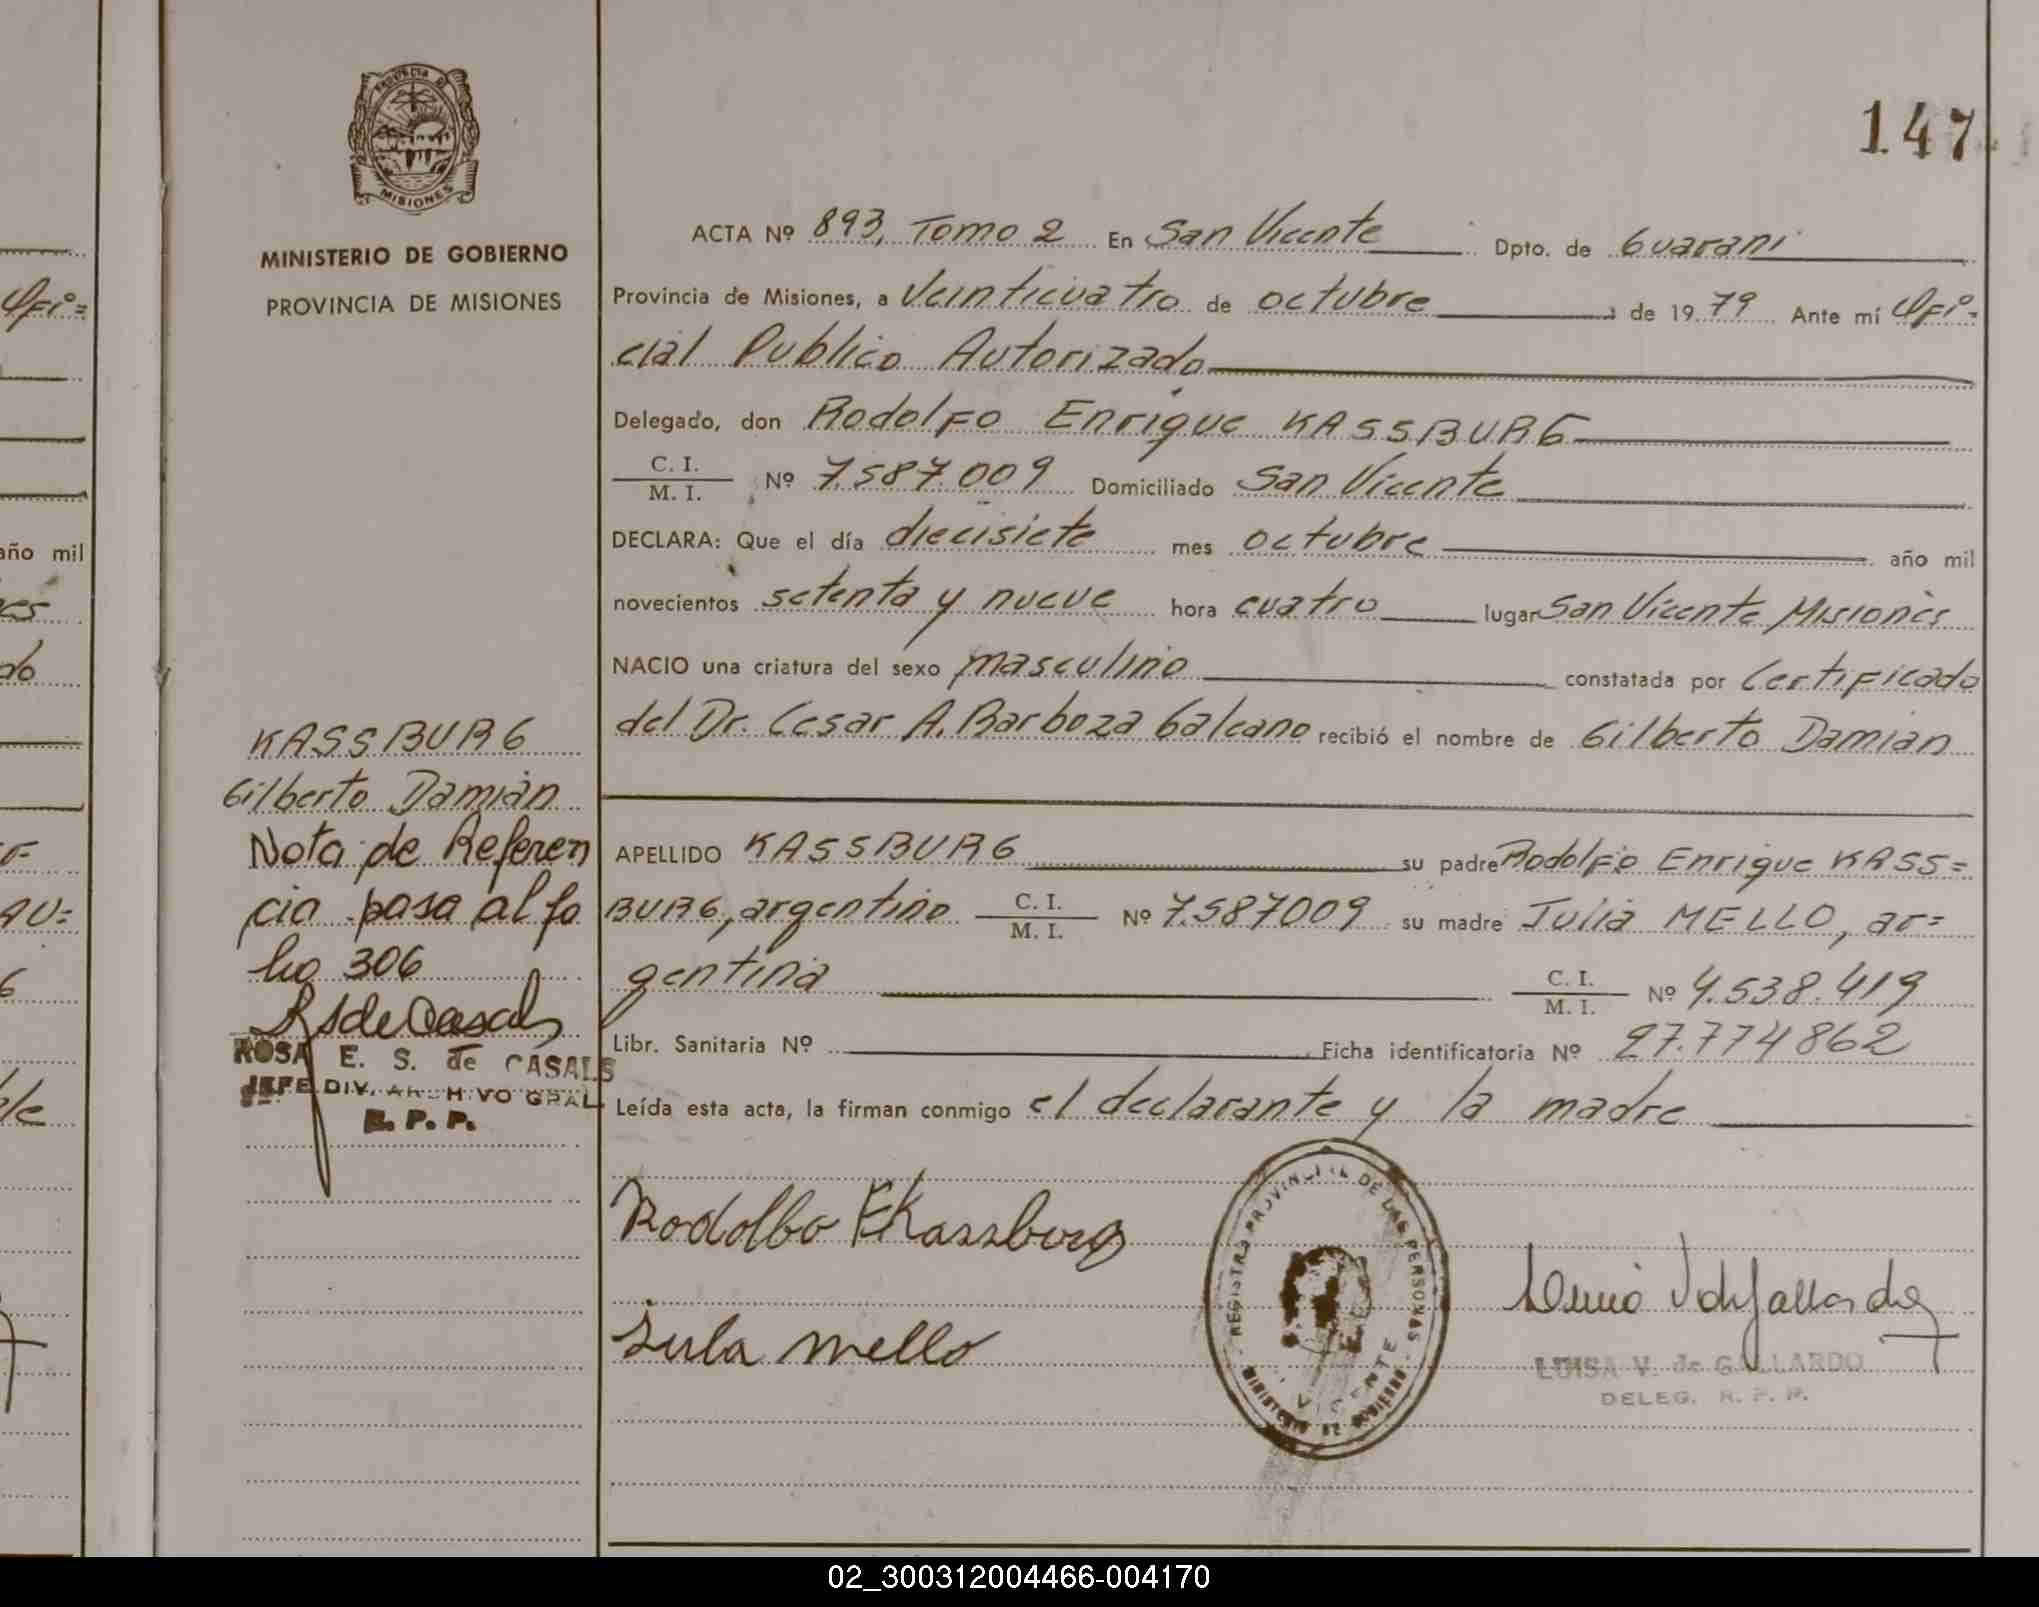 147
PROVINCIA DE
MISIONES
MINISTERIO DE GOBIERNO
PROVINCIA DE MISIONES
ACTA Nº 893, Tomo 2 En San Vicente Dpto. de Guarani
Provincia de Misiones, a Veinticuatro de octubre de 1979 Ante mí Ofi=
cial Publico Autorizado
Delegado, don Rodolfo Enrique KASSBURG
C. I.
M. I. Nº 7.587.009 Domiciliado San Vicente
DECLARA: Que el día diecisiete mes octubre año mil
novecientos setenta y nueve hora cuatro lugar San Vicente Misiones
NACIO una criatura del sexo masculino constatada por Certificado
del Dr. Cesar A. Barboza Galeano recibió el nombre de Gilberto Damian
APELLIDO KASSBURG su padre Rodolfo Enrique KASS=
BURG, argentino C. I. M. I. Nº 7.587009 su madre Julia MELLO, ar=
gentina C. I. M. I. Nº 4.538.419
Libr. Sanitaria Nº Ficha identificatoria Nº 27.774862
Leída esta acta, la firman conmigo el declarante y la madre
Rodolfo E Kassburg
Julia mello
REGISTRO PROVINCIAL DE LAS PERSONAS
VICENTE
LUISA V. de GALLARDO
DELEG. R. P. P.
KASSBURG
Gilberto Damián
Nota de Referen
cia pasa al fo
lio 306
ROSA E. S. de CASALS
JEFE DIV. ARCHIVO GRAL
R. P. P.
Ofi=
año mil
do
AU=
02_300312004466-004170